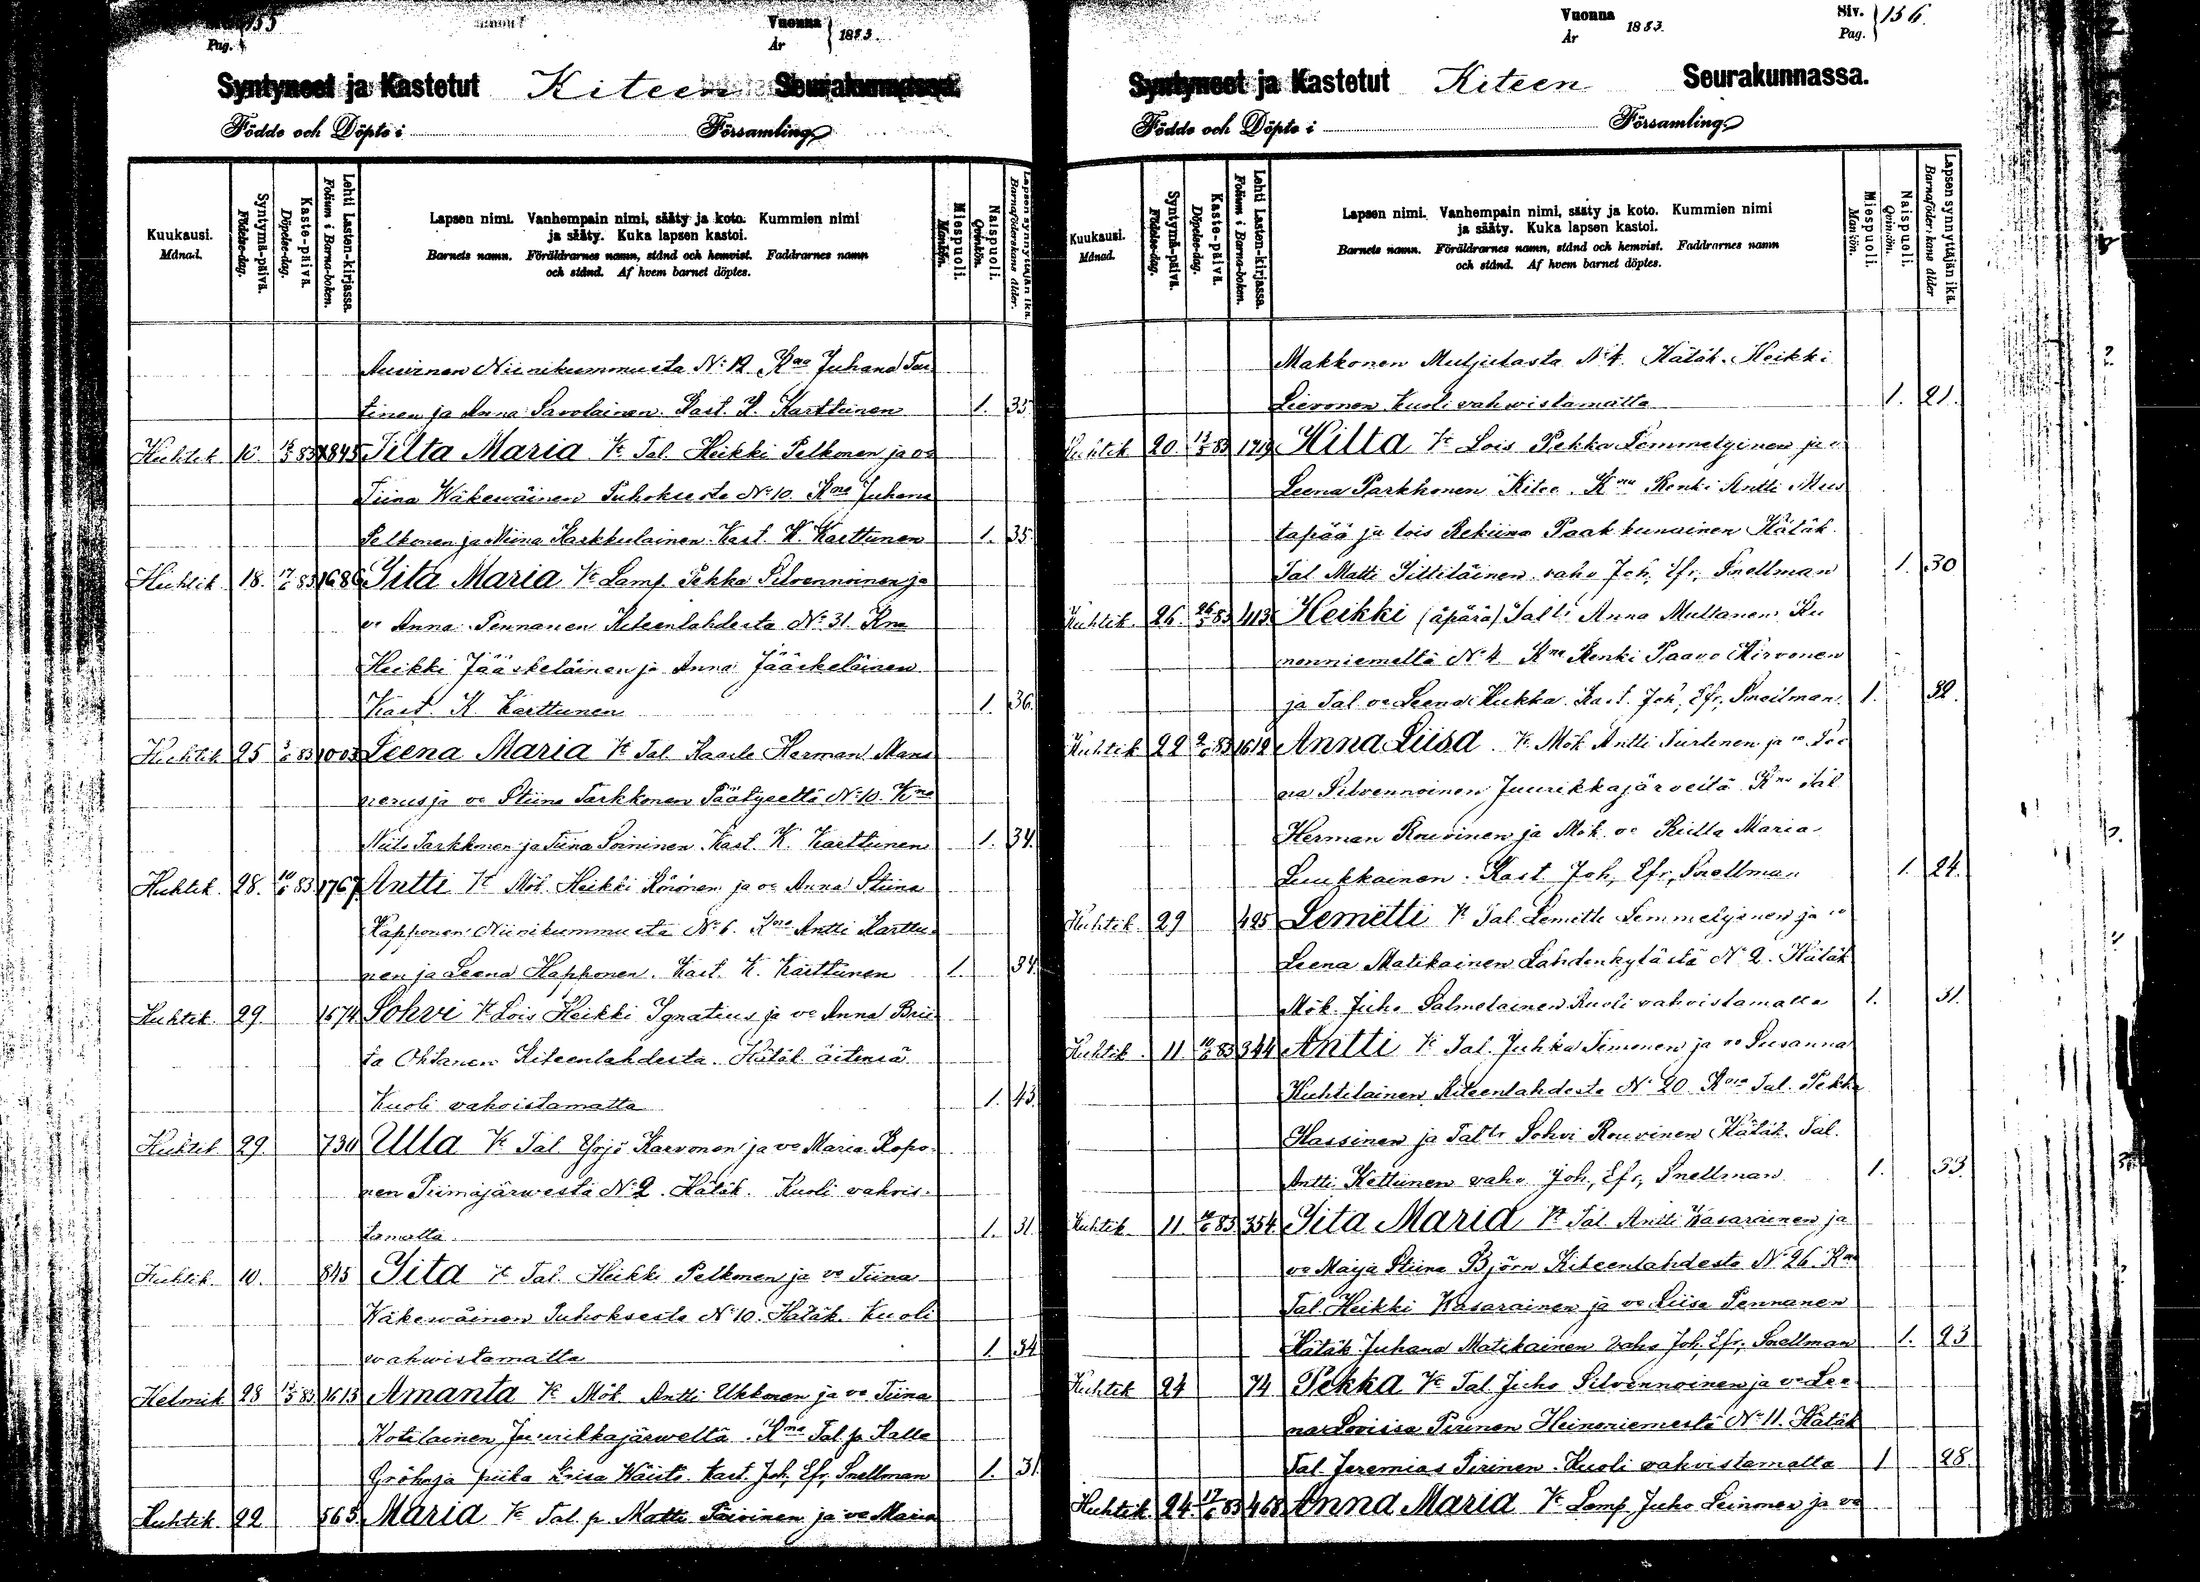 155
Pag.
Vuonna
År
1883.
Syntyneet ja Kastetut Kiteen Seurakunnassa.
Födde och Döpte i Församling
Kuukausi.
Månad.
Syntymä-päivä.
Födelse-dag.
Kaste-päivä.
Döpelse-dag.
Lehti Lasten-kirjassa.
Folium i Barna-boken.
Lapsen nimi. Vanhempain nimi, sääty ja koto. Kummien nimi
ja sääty. Kuka lapsen kastoi.
Barnets namn. Föräldrarnes namn, stånd och hemvist. Faddrarnes namn
och stånd. Af hvem barnet döptes.
Miespuoli.
Mankön.
Naispuoli.
Qvinkön.
Lapsen synnyttäjän ikä.
Barnaföderskans ålder.
Niinikummusta N:o 12 Juhana
tinen ja Anna Savolainen. Kast. K. Karttunen 1. 35
Huhtik. 10. 83 845 Tilta Maria Vt Tal. Heikki Pelkonen ja vo
Tiina Wäkewäinen Puhoksesta N:o 10. Kma Juhana
Pelkonen ja Miina Karkkulainen. Kast. K. Karttunen 1. 35
Huhtik. 18. 17/6 83 1686 Iita Maria Vt Lamp. Pekka Silvennoinen ja
vo Anna Pennanen Kiteenlahdesta N:o 31. Kma
Heikki Jääskeläinen ja Anna Jääskeläinen
Kast. K. Karttunen 1. 36.
Huhtik. 25 83 1003 Leena Maria Vt Tal. Kaarle Herman Mans
nerus ja vo Stiina Tarkkonen Päätyeeltä N:o 10. Kma
Niilo Tarkkonen ja Tiina Soininen. Kast. K. Karttunen 1. 34.
Huhtik. 28. 10/6 83 1767 Antti Vt Mök. Heikki Körönen ja vo Anna Stiina
Kapponen Niinikummusta N:o 6. Kma Antti Karttu-
nen ja Leena Happonen. Kast. K. Karttunen 1. 34.
Huhtik. 29. 1674 Sohvi Vt Lois Heikki Ignatius ja vo Anna Brii
ta Ohtanen Kiteenlahdesta. Hätäk. äitensä
Kuoli vahvistamatta 1. 43.
Huhtik. 29. 730 Ulla Vt Tal. Yrjö Karvonen ja vo Maria Kopo-
nen Piimäjärwestä N:o 2. Hätäk. Kuoli vahvis-
tamatta 1. 31.
Huhtik. 10. 845 Iita Vt Tal. Heikki Pelkonen ja vo Tiina
Wäkewäinen Puhoksesta N:o 10. Hätäk. Kuoli
vahwistamatta 1. 34
Helmik. 28 83 1613 Amanta Vt Mök. Antti Ukkonen ja vo Tiina
Kotilainen Juurikkajärweltä. Kma Tal. p. Kalle
Gröhn ja piika Kast. Joh. Efr. Snellman 1. 31.
Huhtik. 22 565. Maria Vt Tal. p. Matti Päivinen ja vo Maria
Vuonna
År
1883.
Siv.
Pag.
156.
Syntyneet ja Kastetut Kiteen Seurakunnassa.
Födde och Döpte i Församling
Kuukausi.
Månad.
Syntymä-päivä.
Födelse-dag.
Kaste-päivä.
Döpelse-dag.
Lehti Lasten-kirjassa.
Folium i Barna-boken.
Lapsen nimi. Vanhempain nimi, sääty ja koto. Kummien nimi
ja sääty. Kuka lapsen kastoi.
Barnets namn. Föräldrarnes namn, stånd och hemvist. Faddrarnes namn
och stånd. Af hvem barnet döptes.
Miespuoli.
Mankön.
Naispuoli.
Qvinkön.
Lapsen synnyttäjän ikä.
Barnaföderskans ålder
Makkonen Muljulasta N:o 4. Hätäk. Heikki
Lievonen. Kuoli vahwistamatta 1. 21.
Huhtik 20. 83 1719 Hilta Vt Lois Pekka Lemmetyinen ja vo
Leena Parkkonen Kitee. Kma Renki Antti Mus
tapää ja lois Rekiina Paakkunainen Hätäk.
Tal. Matti Siltiläinen. vahv. Joh. Efr. Snellman 1. 30
Huhtik. 26. 26/5 83 413 Heikki (äpärä) Tal. tr Anna Multanen Ku
nonniemeltä N:o 4. Kma Renki Paavo Hirvonen
ja Tal. vo Leena Kukka. Kast. Joh. Efr. Snellman. 1. 32.
Huhtik 22 83 1612 Anna Liisa Vt Mök. Antti Turtinen ja vo Lee
na Silvennoinen Juurikkajärveltä Kma Tal.
Herman Rouvinen ja Mök. vo Maria
Luukkainen. Kast. Joh. Efr. Snellman 1. 24.
Huhtik. 29 425 Lemetti Vt Tal. Lemetti Lemmetyinen ja vo
Leena Matikainen Lahdenkylästä N:o 2. Hätäk
Mök. Juho Salmelainen Kuoli vahvistamatta 1. 31.
Huhtik. 11 10/6 83 344 Antti Vt Tal. Juhka Timonen ja vo Susanna
Huhtilainen Kiteenlahdesta N:o 20. Kma Tal. Pekka
Hassinen ja Tal. tr Sohvi Rouvinen Hätäk. Tal.
Antti Kettunen vahv. Joh. Efr. Snellman 1. 33.
Huhtik. 11. 83 354. Iita Maria Vt Tal. Antti Kasarainen ja
vo Maija Stiina Björn Kiteenlahdesta N:o 26. Kma
Tal. Heikki Kasarainen ja vo Liisa Pennanen
Hätäk. Juhana Matikainen vahv. Joh. Efr. Snellman 1. 23
Huhtik 24 74 Pekka Vt Tal. Juho Silvennoinen ja vo Lee-
na Loviisa Pirinen Heinoniemestä N:o 11. Hätäk
Tal. Jeremias Pirinen. Kuoli vahvistamatta 1 28.
Huhtik. 24. 17/6 83 468 Anna Maria Vt Lamp. Juho Leinonen ja vo